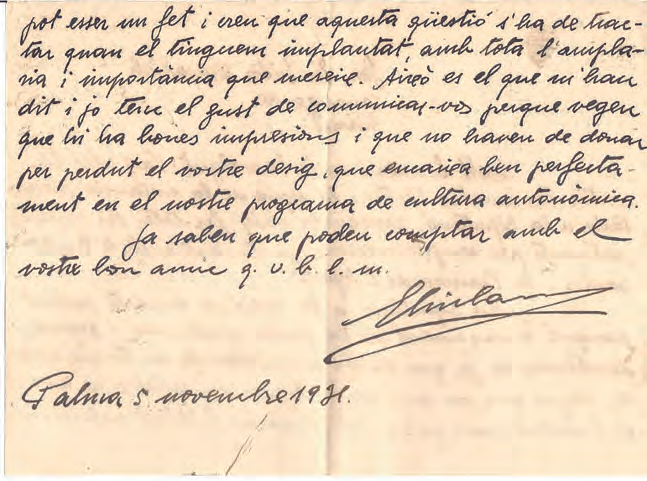 pot esser un fet i creu que aquesta güestió s'ha de trac-
tar quan el tinguem implantat, amb tota l'amplà-
ria i importància que mereix. Aixó es el que m'han
dit i jo tenc el gust de comunicar-vos perque vegeu
que hi ha bones impresions i que no haveu de donar
per perdut el vostre desig, que encaixa ben perfecta-
ment en el nostre programa de cultura autonòmica.
Ja saben que poden comptar amb el
vostre bon amic q. v. b. l. m.
Palma 5 novembre 1931.